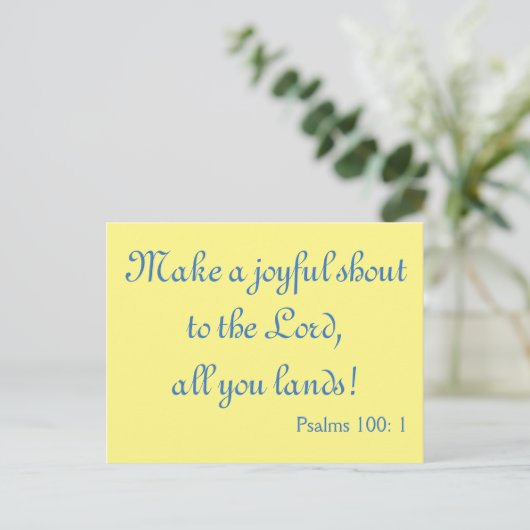 Make a joyful shout
to the Lord,
all you lands!
Psalms 100: 1